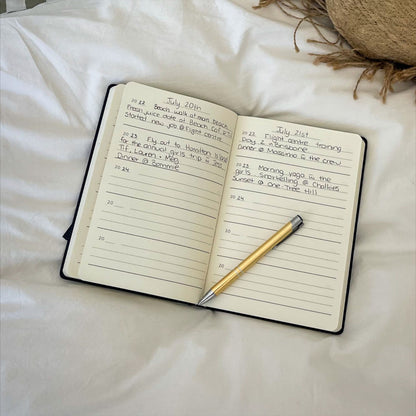 July 20th
20 22 Beach walk at main beach
Fresh juice date at Beach Cafe
Started new job @ Flight Centre
20 23 Fly out to Hamilton Island
for the annual girls trip w Jess
Tif, Lauren & Meg.
Dinner @ Bommie
20 24
20
20
July 21st
20 22 Flight centre training
Day 2 in Brisbane
Dinner @ Massimo & the crew
20 23 Morning yoga & the
girls Snorkelling @ Chalkies
Sunset @ One Tree Hill
20 24
20
20